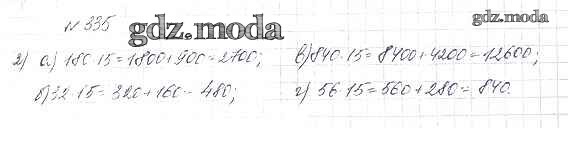 № 335
gdz.moda
gdz.moda
2) а) 180·15=1800+900=2700; в) 840·15=8400+4200=12600;
б) 32·15=320+160=480; г) 56·15=560+280=840.